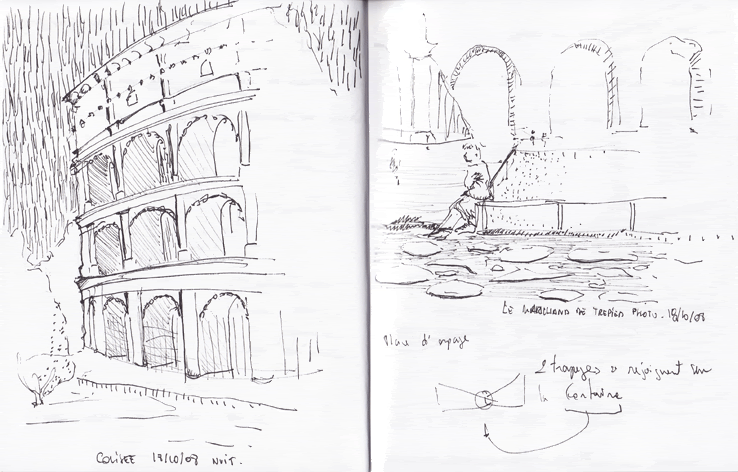 COLISEE 17/10/08 NUIT.
LE MARCHAND DE TREPIED PHOTO. 18/10/08
Place d'
2 trapezes se rejoignent sur
la fontaine